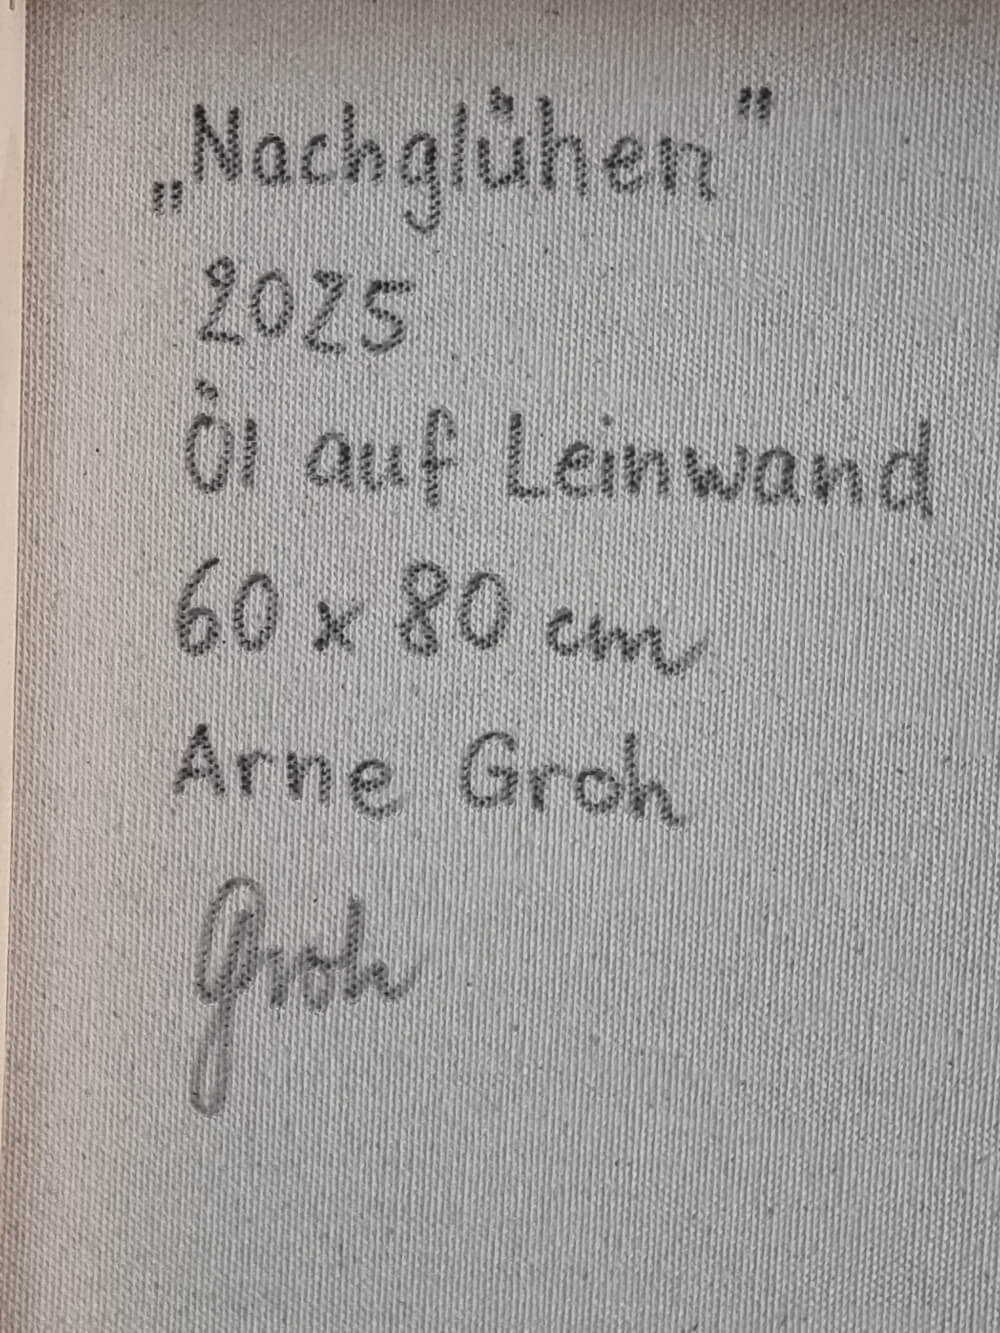 „Nachglühen"
2025
Öl auf Leinwand
60 x 80 cm
Arne Groh
Groh